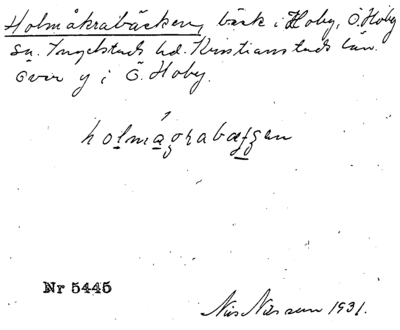 Holmåkrabäcken, bäck i Hoby, Ö. Hoby
sn. Ingelstads hd. Kristianstads län.
över y i Ö. Hoby.
holmagrabæʒen
Nr 5445
Nils Nilsson 1931.